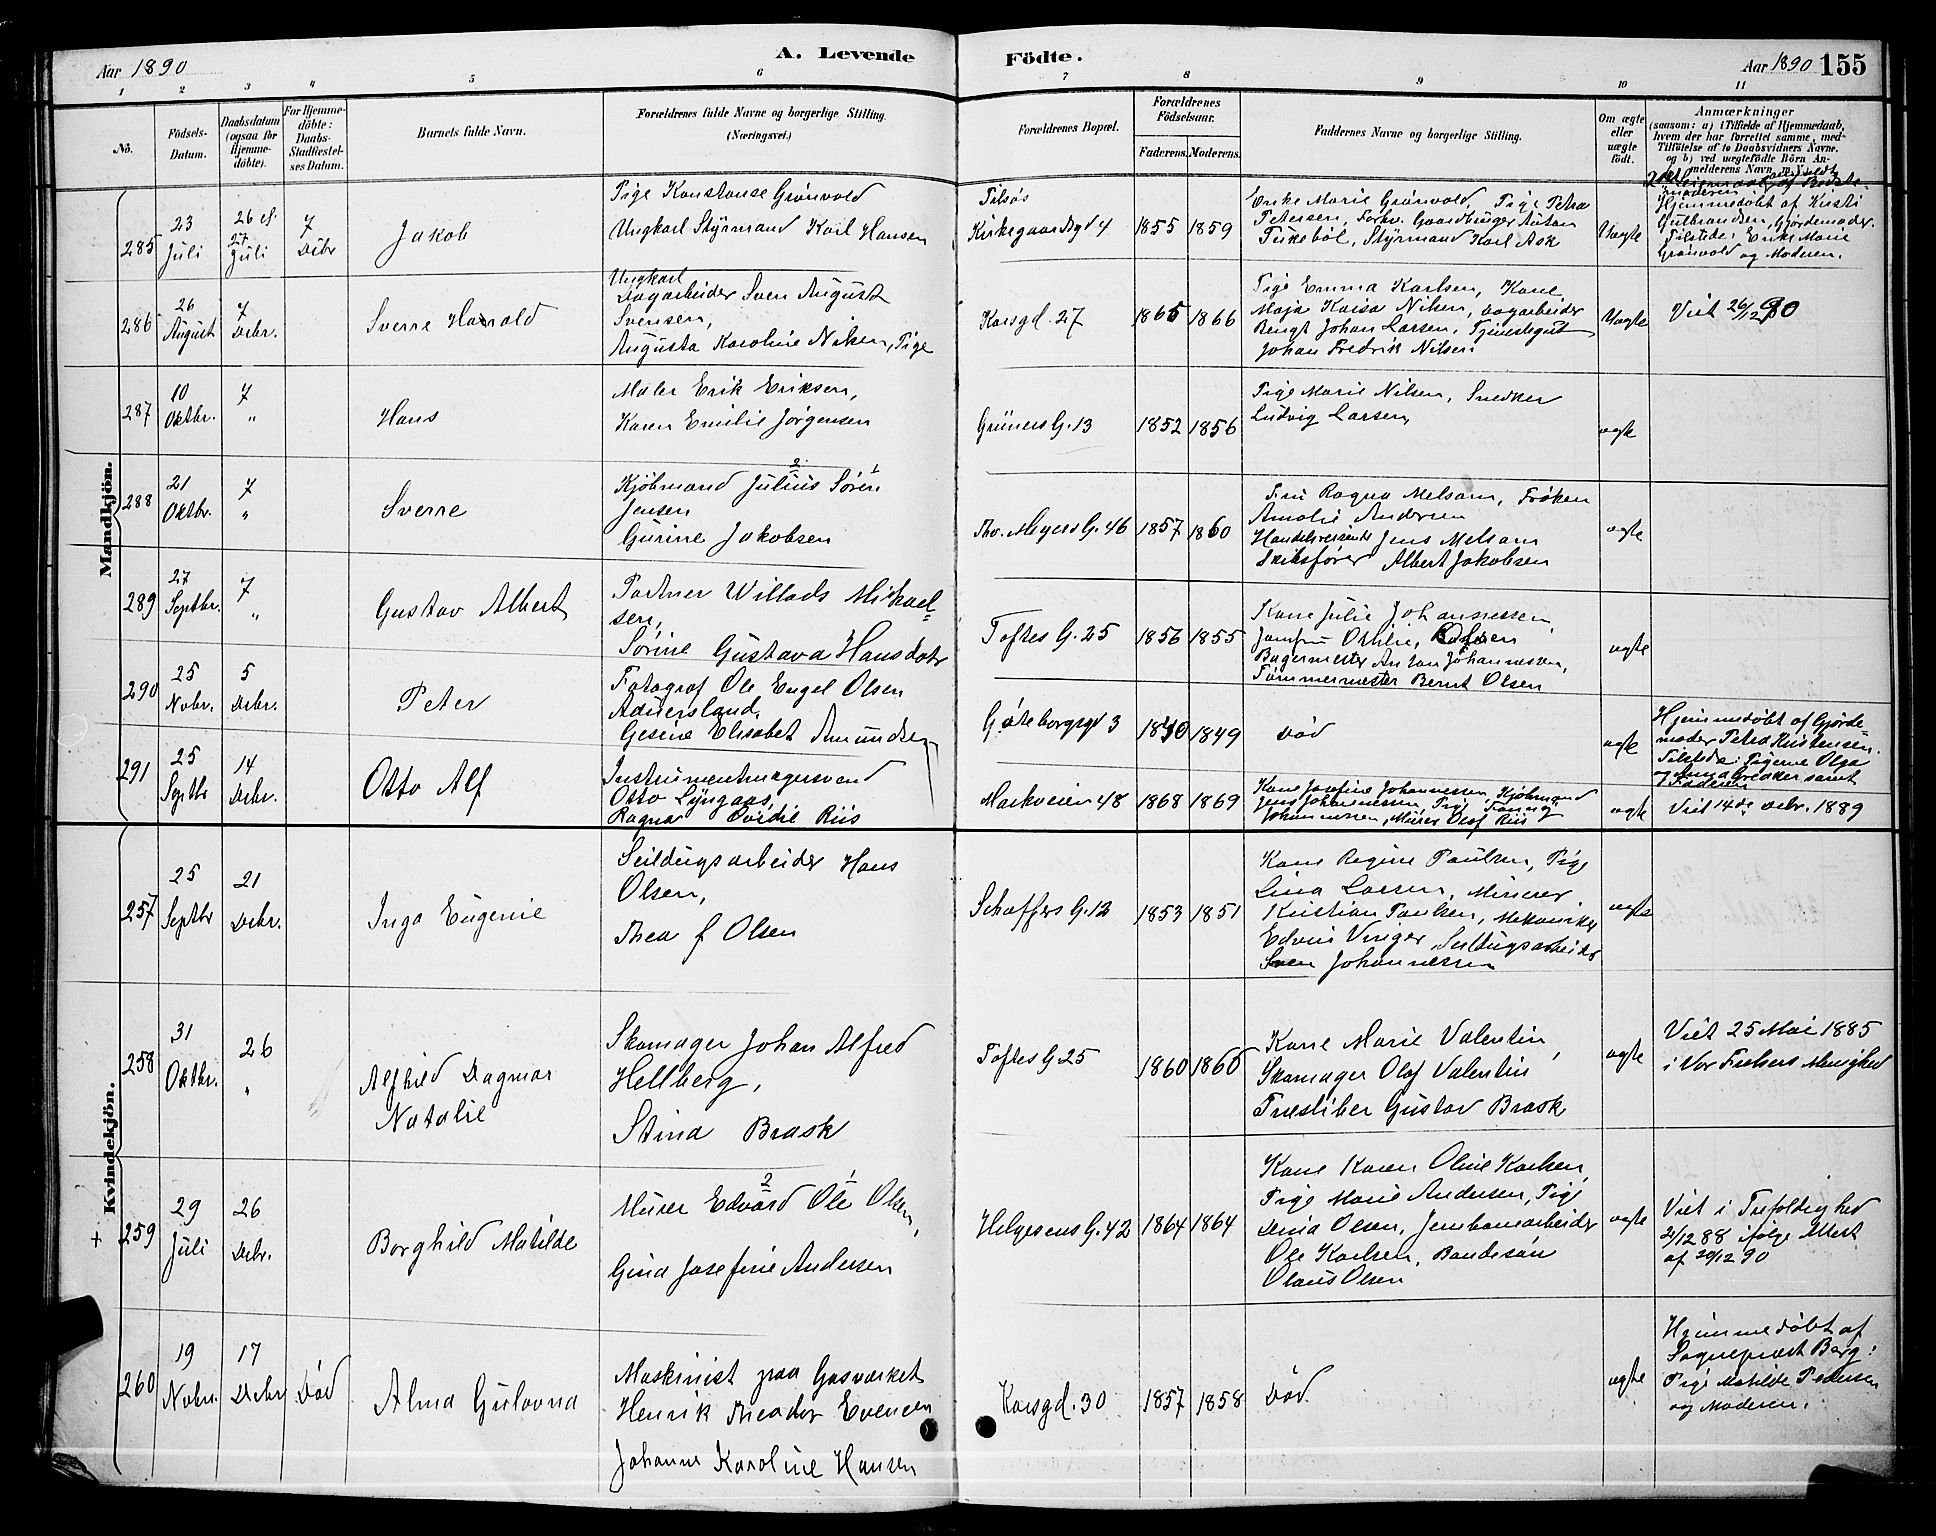 Aar 1890
A. Levende
Födte.
Aar 1890 155
1 2 3 4 5 6 7 8 9 10 11
Nö.
Födsels-
Datum.
Daabsdatum
(ogsaa for
Hjemme-
döbte).
For Hjemme-
döbte:
Daabs-
Stadfæstel-
ses Datum.
Barnets fulde Navn.
Forældrenes fulde Navne og borgerlige Stilling.
(Næringsvei.)
Forældrenes Bopæl.
Forældrenes
Födselsaar.
Faderens. Moderens.
Faddernes Navne og borgerlige Stilling.
Om ægte
eller
uægte
födt.
Anmærkninger
(saasom: a) i Tilfælde af Hjemmedaab,
hvem der har forrettet samme, med
Tilföielse af to Daabsvidners Navne,
og b) ved uægtefödte Börn An-
melderens Navn
Mandkjön.
285
23
Juli
26 ef.
27
Juli
7
Debr
Jakob
Pige Konstanse Grönvold
Ungkarl Styrmand Karl Hansen
Tilsøs
Kirkegaardsgd 4
1855 1859
Enke Marie Grönvold, Pige Petra
Petersen, Forhv. Gaardbruger Anton
Fuksböl, Styrmand Karl Ask
Uægte
Hjemmedöbt af Kirsti
Gulbrandsen, Gjordemoder.
Tilstede: Enke Marie
Grönvold og Moderen.
286
26
August
7
Debr.
Sverre Harald
Ungkarl
Dagarbeider Sven August
Svensen,
Augusta Karoline Nilsen, Pige
Korsgd. 27
1865 1866
Pige Emma Karlsen, Kone
Maja Kaisa Nilsen, Dagarbeider
Bengt Johan Larsen, Tjenestegut
Johan Fredrik Nilsen
Uægte
Viet 26/12 90
287
10
Oktbr.
7
"
Hans
Maler Erik Eriksen,
Karen Emilie Jørgensen
Grüners G. 13
1852 1856
Pige Marie Nilsen, Snedker
Ludvig Larsen,
ægte
288
21
Oktbr.
7
"
Sverre
Kjöbmand Julius Sören
Jensen
Gurine Jakobsen
Thv. Meyers G. 46
1857 1860
Fru Ragna Melsom, Fröken
Amalie Andersen
Handelsreisende Jens Melsom
Skibsfører Albert Jakobsen
ægte
289
27
Septbr.
7
"
Gustav Albert
Portner Willads Mikael-
sen,
Sørine Gustava Hansdatr
Toftes G. 25
1856 1855
Kone Julie Johannessen,
Jomfru Othilie Olsen
Bagermester Anton Johannessen,
Tømmermester Bernt Olsen
ægte
290
25
Nvbr.
5
Debr.
Peter
Fotograf Ole Engel Olsen
Gesine Elisabet Amundsen
Gøteborgsgd 3
1840 1849
død
ægte
Hjemmedøbt af Gjorde-
moder Petra Kristensen.
Tilstede: Pigerne Olga
og Anna Bredder samt
Faderen
291
25
Septbr
14
Debr.
Otto Alf
Instrumentmagersvend
Otto Lyngaas,
Ragna Ovidie Riis
Markveien 48
1868 1869
Kone Josefine Johannessen, Kjöbmand
Jens Johannessen, Pige Fanny
Johannessen, Murer Olaf Riis
ægte
Viet 14de Debr. 1889
Kvindekjön.
257
25
Septbr
21
Debr.
Inga Eugenie
Seildugsarbeider Hans
Olsen,
Thea f Olsen
Schaffers G. 12
1853 1851
Kone Regine Paulsen, Pige
Lina Larsen, Murer
Kristian Paulsen, Mekaniker
Edvin Unger, Seildugsarbeider
Sven Johannessen
ægte
258
31
Oktbr.
26
"
Alfhild Dagmar
Natalie
Skomager Johan Alfred
Hellberg,
Stina Brask
Toftes G. 25
1860 1860
Kone Marie Valentin,
Skomager Olaf Valentin
Træsliber Gustav Brask
ægte
Viet 25 Mai 1885
i Vor Frelsers Menighed
+ 259
29
Juli
26
Debr.
Borghild Matilde
Murer Edvard Ole Olsen,
Gina Josefine Andersen
Helgesens G. 42
1864 1864
Kone Karen Oline Karlsen,
Pige Marie Andersen, Pige
Dina Olsen, Jernbanearbeider
Ole Karlsen, Bondesøn
Olaus Olsen
ægte
Viet i Trefoldighed
2/12 88 ifølge Attest
af 20/12 90
260
19
Nvbr.
17
Debr
Död
Alma Gulovna
Maskinist paa Gasværket
Henrik Theodor Evensen
Johanne Karoline Hansen
Korsgd. 30
1857 1858
Död.
ægte
Hjemmedöbt af
Sognepræst Berg:
Pige Matilde Pedersen
og Moderen.